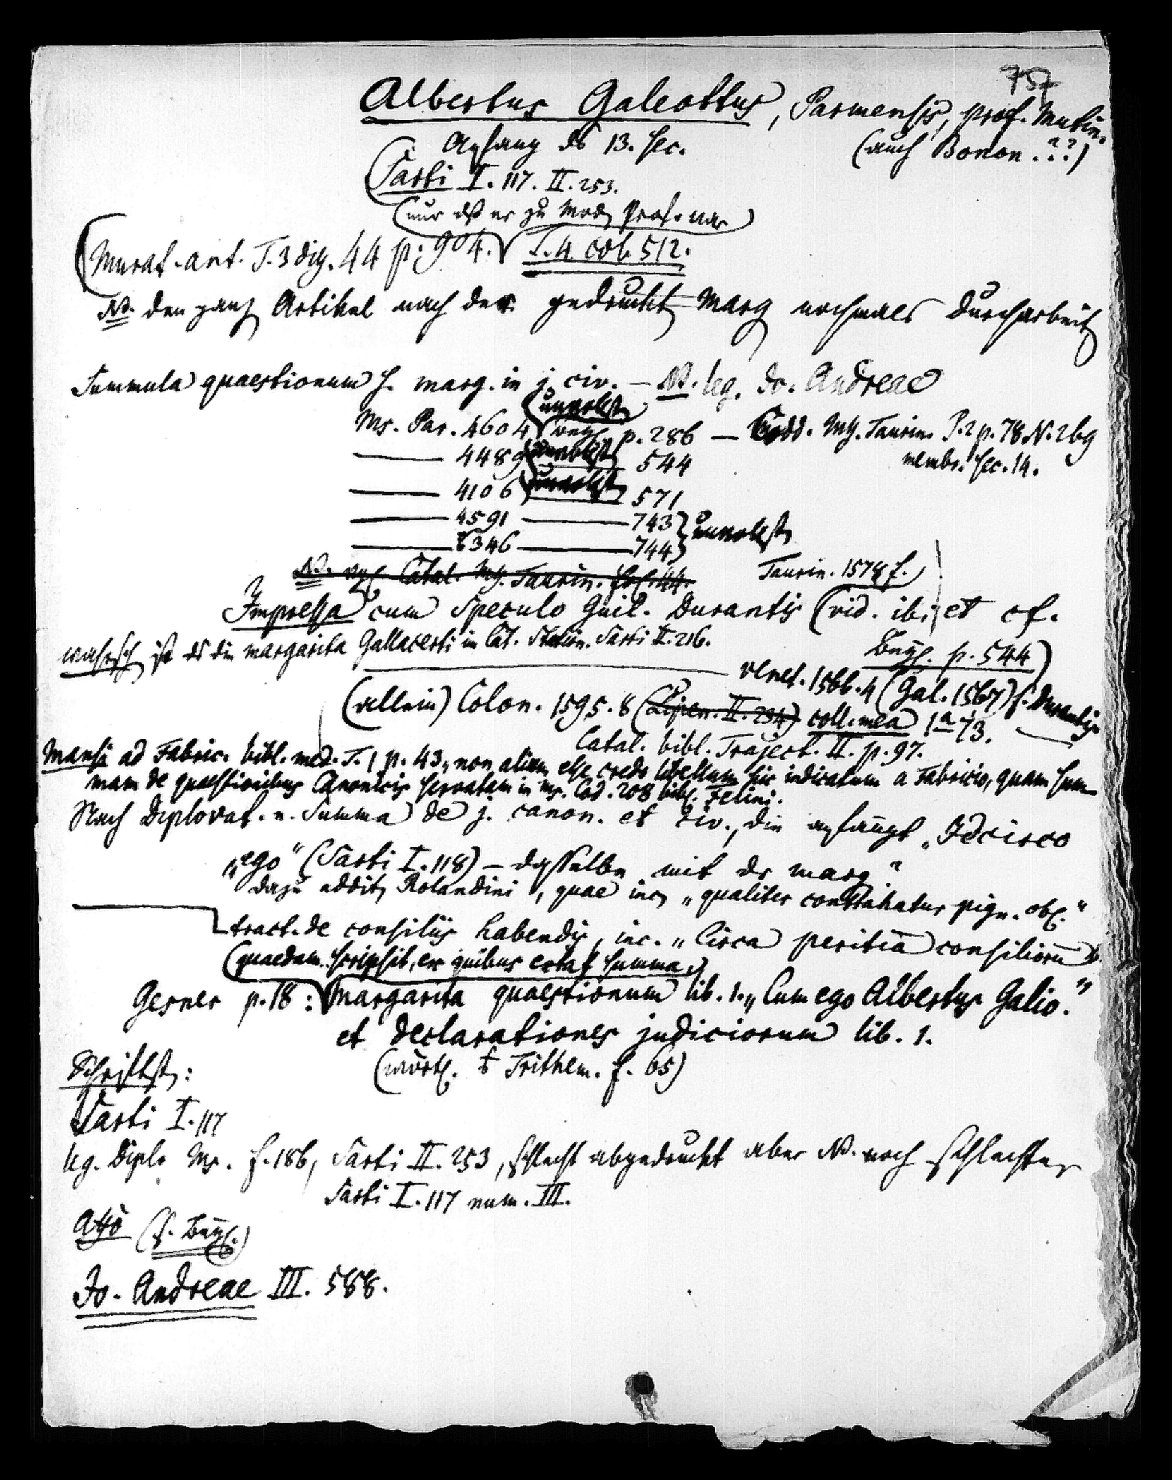 757
Albertus Galeottus, Parmensis, prof. Mutin.
Anfang ds 13. sec. (auch Bonon.??)
(Sarti I. 117. II. 253.
(nur dß er zu Mod. Prof. war)
(Murat. ant. T. 3 diss. 44 p. 904. T. 4 col. 512.
NB. den ganz Artikel nach der gedruckt Marg nochmals durcharbeit
Summula quaestionum s. marg. in j. civ. — NB. leg. Jo. Andreae
Ms. Par. 4604 p. 286 — Codd. Ms. Taurin. P. 2 p. 78 N. 269
membr. sec. 14.
— 4489 544
— 4106 571
— 4591 — 743
— 6346 — 744
NB. vgl. Catal. Ms. Taurin. Taurin. 1578 f.
Impressa cum Speculo Guil. Durantis (vid. ib. et cf.
wahrsch ist ds die margarita Gallacerti in Cat. Sarti II. 216. p. 544)
Venet. 1566. 4 (Gal. 1567) s. Durantis
(allein) Colon. 1595. 8 (Lipen. II. 234) coll. mea 1a 73.
Catal. bibl. Traject. II. p. 97.
Mansi ad Fabric. bibl. med. T. 1 p. 43, non alium esse credo libellum hic indicatum a Fabricio, quam sum-
mam de quaestionibus Canonicis servatam in ms. Cod. 208 bibl. Felini.
Nach Diplovat. n. Summa de j. canon. et civ., die anfängt „Idcirco
„ego" (Sarti I. 118) — dasselbe mit dr marg"
dazu addit. Rolandini, quae inc. „qualiter contrahatur pign. obl."
tract. de consiliis habendis, inc. „Circa peritia consiliorum
(quaedam scripsit, ex quibus extat summa)
Gesner p. 18: margarita quaestionum lib. 1. „Cum ego Albertus Galio."
et declarationes judiciorum lib. 1.
(wörtl. Trithem. f. 65)
Schriftst:
Sarti I. 117
leg. Diplo Ms. f. 186, Sarti II. 253, schlecht abgedruckt aber NB. noch schlechter
Sarti I. 117 num. III.
Jo. Andreae III. 588.